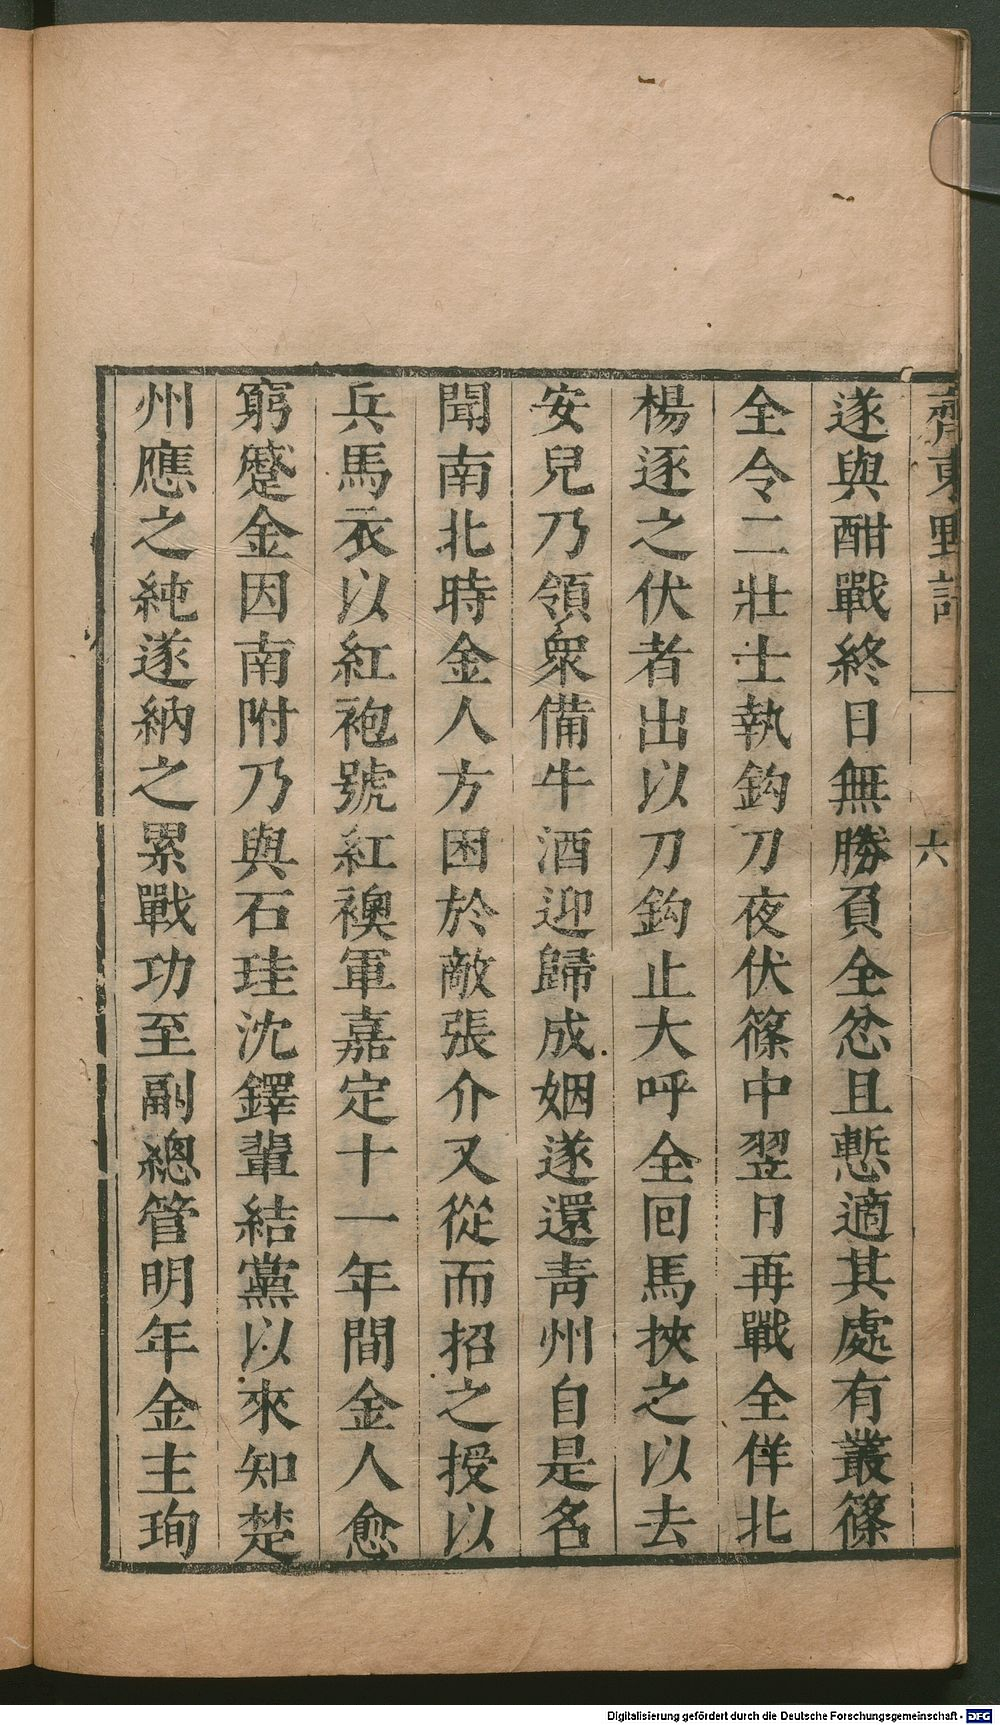 齊東野語
六
遂與酣戰終日無勝負全忿且慙適其處有叢篠
全令二壯士執鈎刀夜伏篠中翌日再戰全佯北
楊逐之伏者出以刀鈎止大呼全回馬挾之以去
安兒乃領衆備牛酒迎歸成姻遂還青州自是名
聞南北時金人方困於敵張介又從而招之授以
兵馬衣以紅袍號紅襖軍嘉定十一年間金人愈
窮蹙金因南附乃與石珪沈鐸輩結黨以來知楚
州應之純遂納之累戰功至副總管明年金主珣
Digitalisierung gefördert durch die Deutsche Forschungsgemeinschaft - DFG